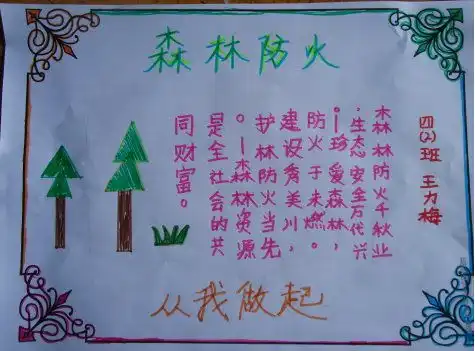 森林防火
森林防火千秋业
，生态安全万代兴
。—珍爱森林，
防火于未燃。
建设秀美川，
护林防火当先
。—森林资源
是全社会的共
同财富。
四(2)班 王力梅
从我做起